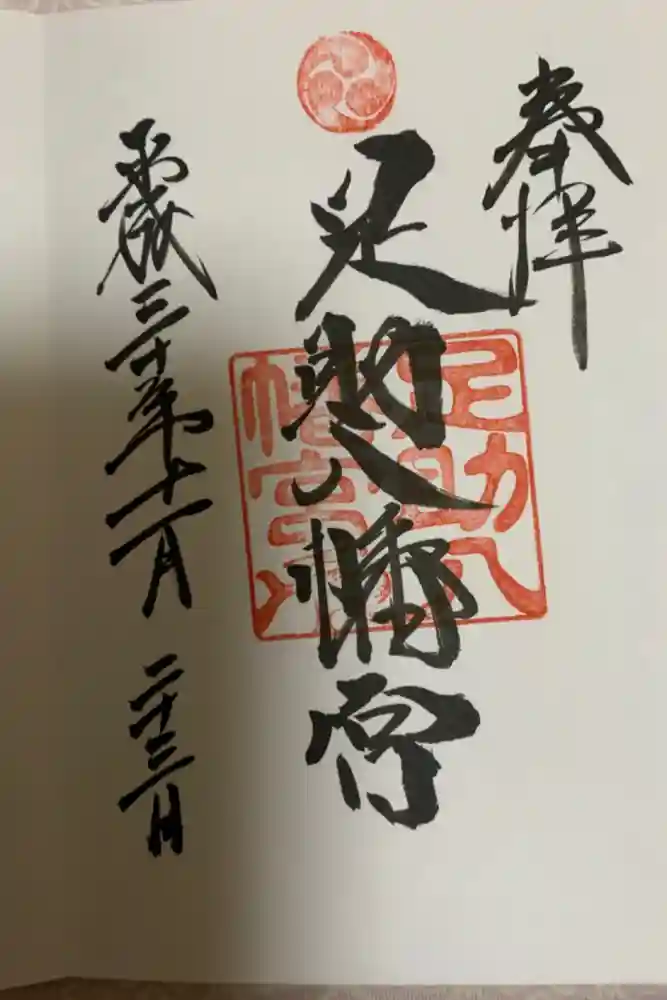 奉拝
足助八幡宮
足助八幡宮
平成三十年十一月二十三日